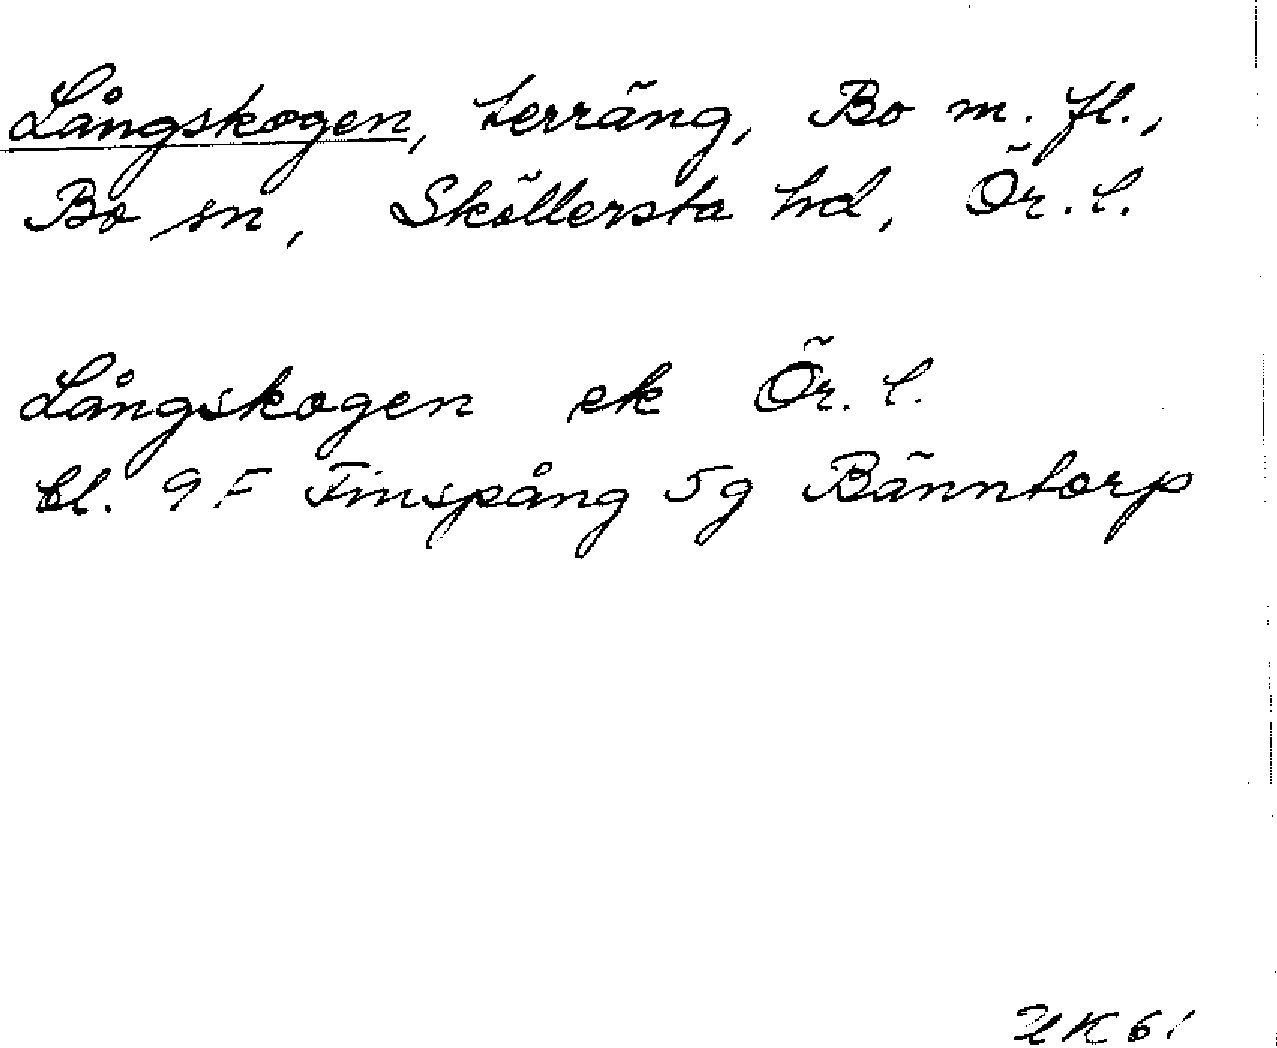 Långskogen, terräng, Bo m. fl.,
Bo sn, Sköllersta hd, Ör. l.
Långskogen ek Ör. l.
bl. 9 F Finspång 5g Bänntorp
HK 61